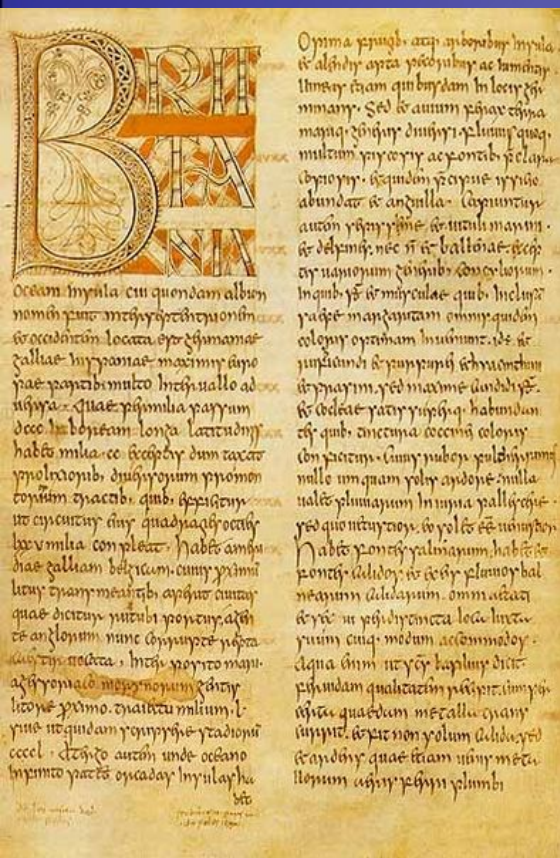 BRIT
TA
NIA
oceani insula cui quondam albion
nomen fuit inter septentrionem
et occidentem locata est germaniae
galliae hispaniae maximis euro
pae partib; multo interuallo ad
uersa. quae per milia passuum
dccc in boream longa latitudinis
habet milia. cc exceptis dum taxat
prolixiorib; diuersorum promon
toriorum tractib; quib; efficitur
ut circuitus eius quadragies octies
lxxv milia conpleat. habet a meri
diae galliam belgicam. cuius proximum
litus transmeantib; aperit ciuitas
quae dicitur rutubi portus. a gen
te anglorum nunc corrupte repta
caestir uocata, interposito mari.
a gessoriaco morynorum gentis
litore proximo. traiectu milium. l.
siue ut quidam scripsere stadiorum
ccccl. A tergo autem unde oceano
infinito patet. orcadas insulas ha
bet
Opima frugib; atq; arborib; insula.
et alendis apta pecorib; ac iumentis.
uineas etiam quibusdam in locis ger
minans. Sed et auium ferax terra
mariq; generis diuersi. fluuiis quoq;
multum piscosis ac fontib; praeclara
copiosis. et quidem praecipue issicio
abundat et anguilla. Capiuntur
autem saepissime et uituli marini.
et delfines. nec non et ballenae. excep
tis uariorum generib; concyliorum.
in quib; sunt et musculae quib; inclusam
saepe margaritam omnis quidem
coloris optimam inueniunt. id est et
rubicundi et purpurei et hyacinthini
et prasini. sed maxime candidi. sunt
et cocleae satis superq; habundan
tes. quib; tinctura coccinei coloris
conficitur. Cuius rubor pulcherrimus
nullo umquam solis ardore. nulla
ualet pluuiarum iniuria pallescere.
sed quo uetustior. eo solet esse uenustior
Habet fontes salinarum, habet et
fontes calidos. et ex eis fluuios bal
nearum calidarum. omni aetati
et sexu per distincta loca iuxta
suum cuiq; modum accommodos.
Aqua enim ut scs basilius dicit
feruidam qualitatem recipit. cum per
certa quaedam metalla trans
currit. et fit non solum calida. sed
et ardens. quae etiam uenis meta
llorum aeris ferri plumbi